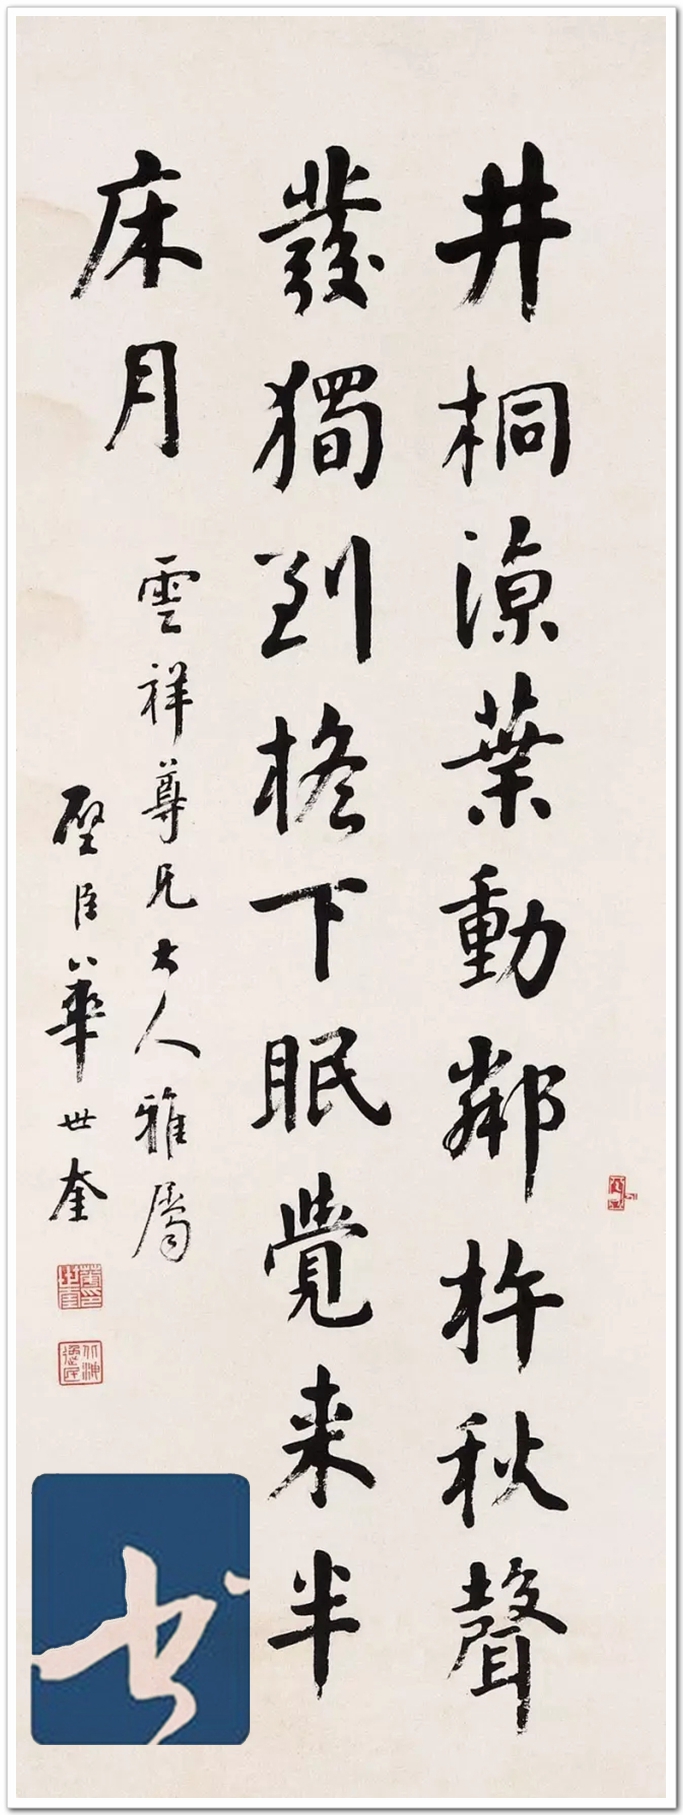 井桐涼葉動鄰杵秋聲
發獨到檐下眠覺来半
床月
雲祥尊兄大人雅屬
璧臣華世奎
书